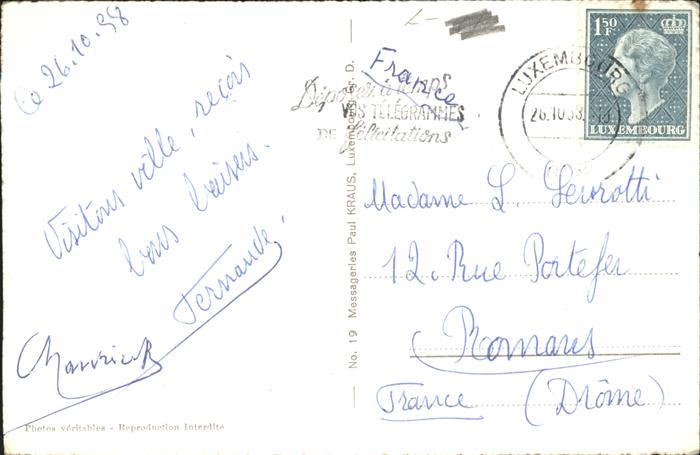 Ce 26.10.58
Visitons ville, reçois
bons baisers.
Fernande.
Maurice
Photos véritables - Reproduction Interdite
No. 19 Messageries Paul KRAUS, Luxembourg-Gare D.
L-
France
Déposez à temps
VOS TÉLÉGRAMMES
DE félicitations
LUXEMBOURG
26.10.58
1,50 F
LUXEMBOURG
Madame L.
12. Rue Portefer
Romans
France (Drôme)